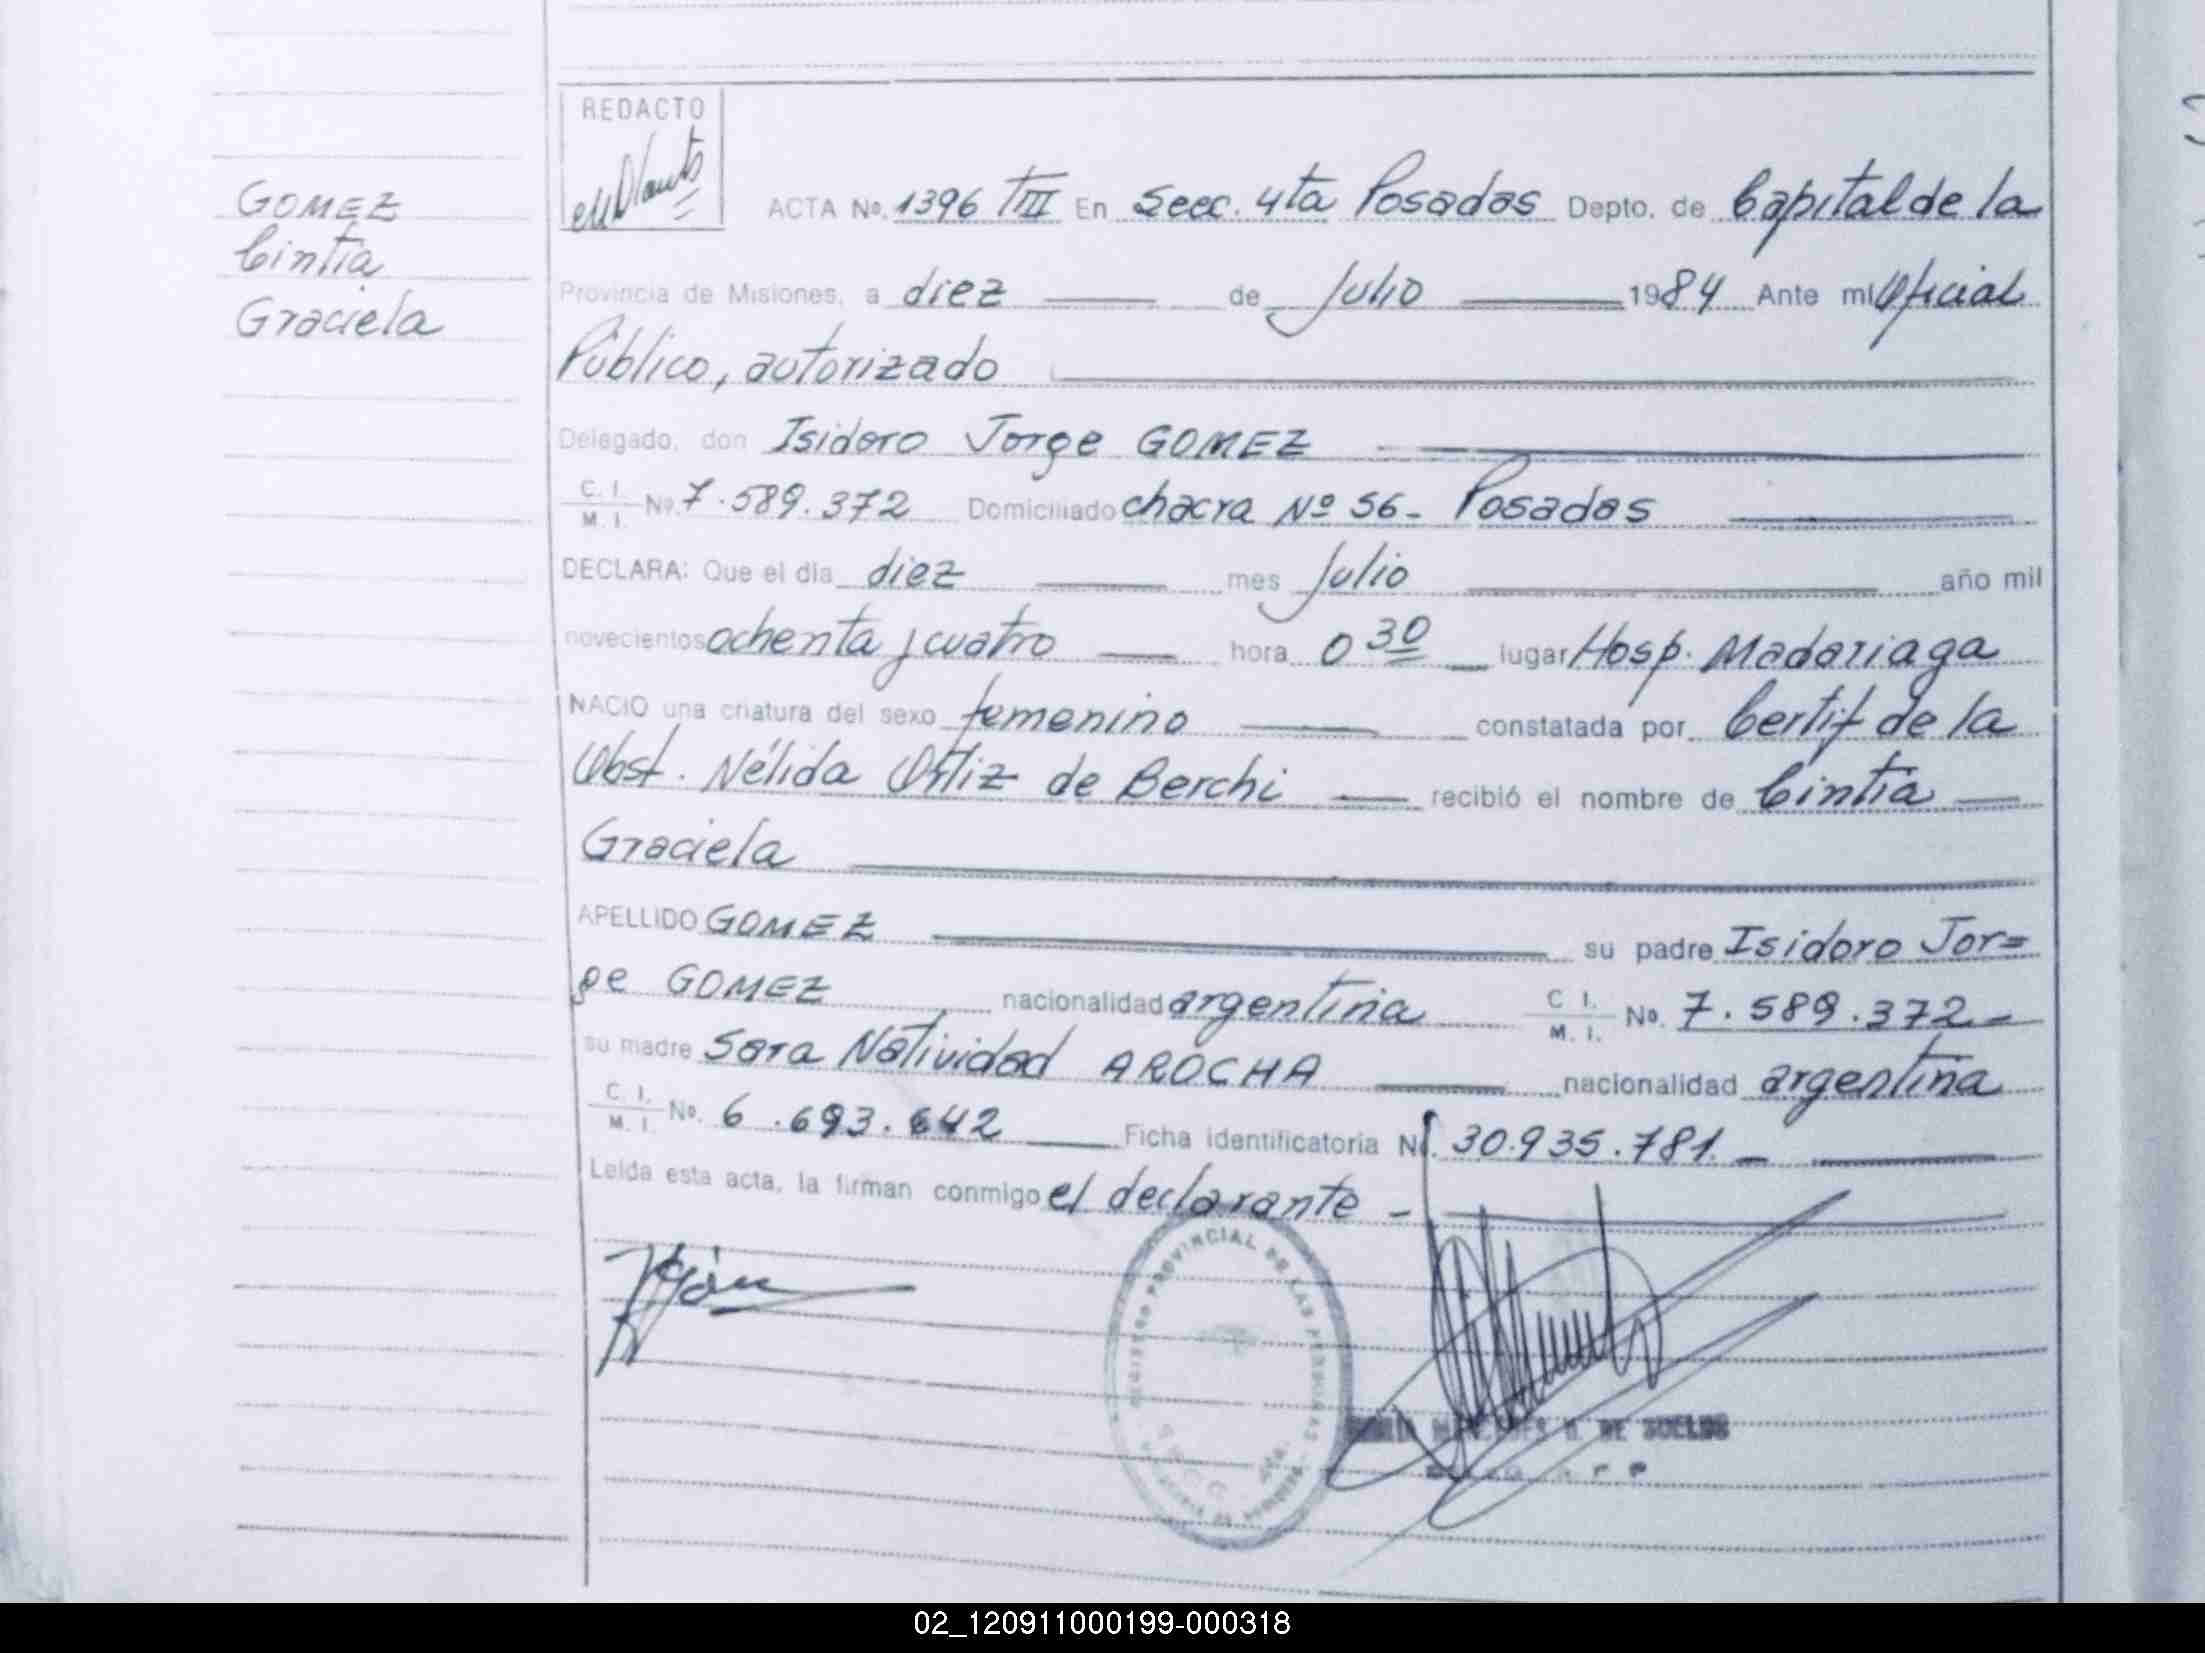 REDACTO
GOMEZ
Cintia
Graciela
ACTA No. 1396 TIII En Secc. 4ta Posadas Depto. de Capital de la
Provincia de Misiones, a diez de Julio 1984 Ante mi Oficial
Público, autorizado
Delegado, don Isidoro Jorge GOMEZ
C. I. M. I. No. 7.589.372 Domiciliado chacra Nº 56- Posadas
DECLARA: Que el día diez mes Julio año mil
novecientos ochenta y cuatro hora 0 30 lugar Hosp. Madariaga
NACIO una criatura del sexo femenino constatada por Certif de la
Obst. Nélida Ortiz de Berchi recibió el nombre de Cintia
Graciela
APELLIDO GOMEZ su padre Isidoro Jor=
ge GOMEZ nacionalidad argentina C I. M. I. No. 7.589.372-
su madre Sara Natividad AROCHA nacionalidad argentina
C. I. M. I. No. 6.693.642 Ficha identificatoria N. 30.935.781.-
Leída esta acta, la firman conmigo el declarante -
REGISTRO PROVINCIAL DE LAS PERSONAS
DE SUELDO
02_120911000199-000318